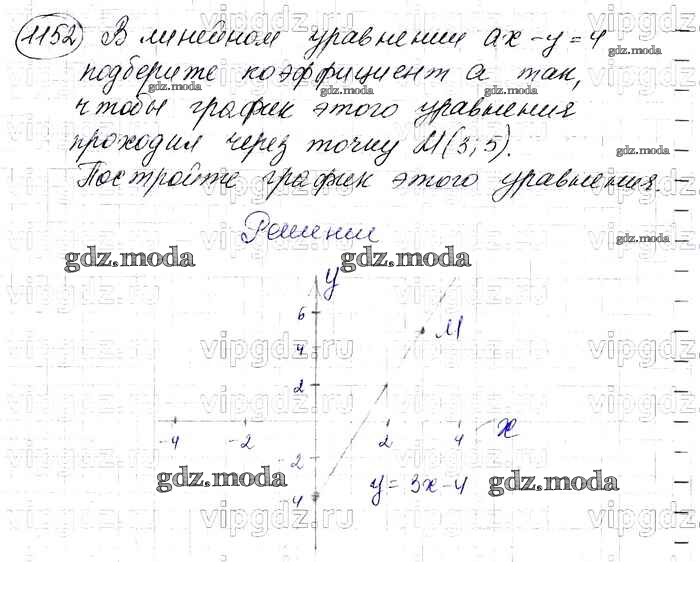 1152 В линейном уравнении ax-y=4
подберите коэффициент a так,
чтобы график этого уравнения
проходил через точку M(3;5).
Постройте график этого уравнения.
Решение
y
6
4
2
M
-4 -2 2 4 x
-2
-4
y=3x-4
gdz.moda
gdz.moda
gdz.moda
gdz.moda
gdz.moda
gdz.moda
gdz.moda
gdz.moda
gdz.moda
gdz.moda
vipgdz.ru
vipgdz.ru
vipgdz.ru
vipgdz.ru